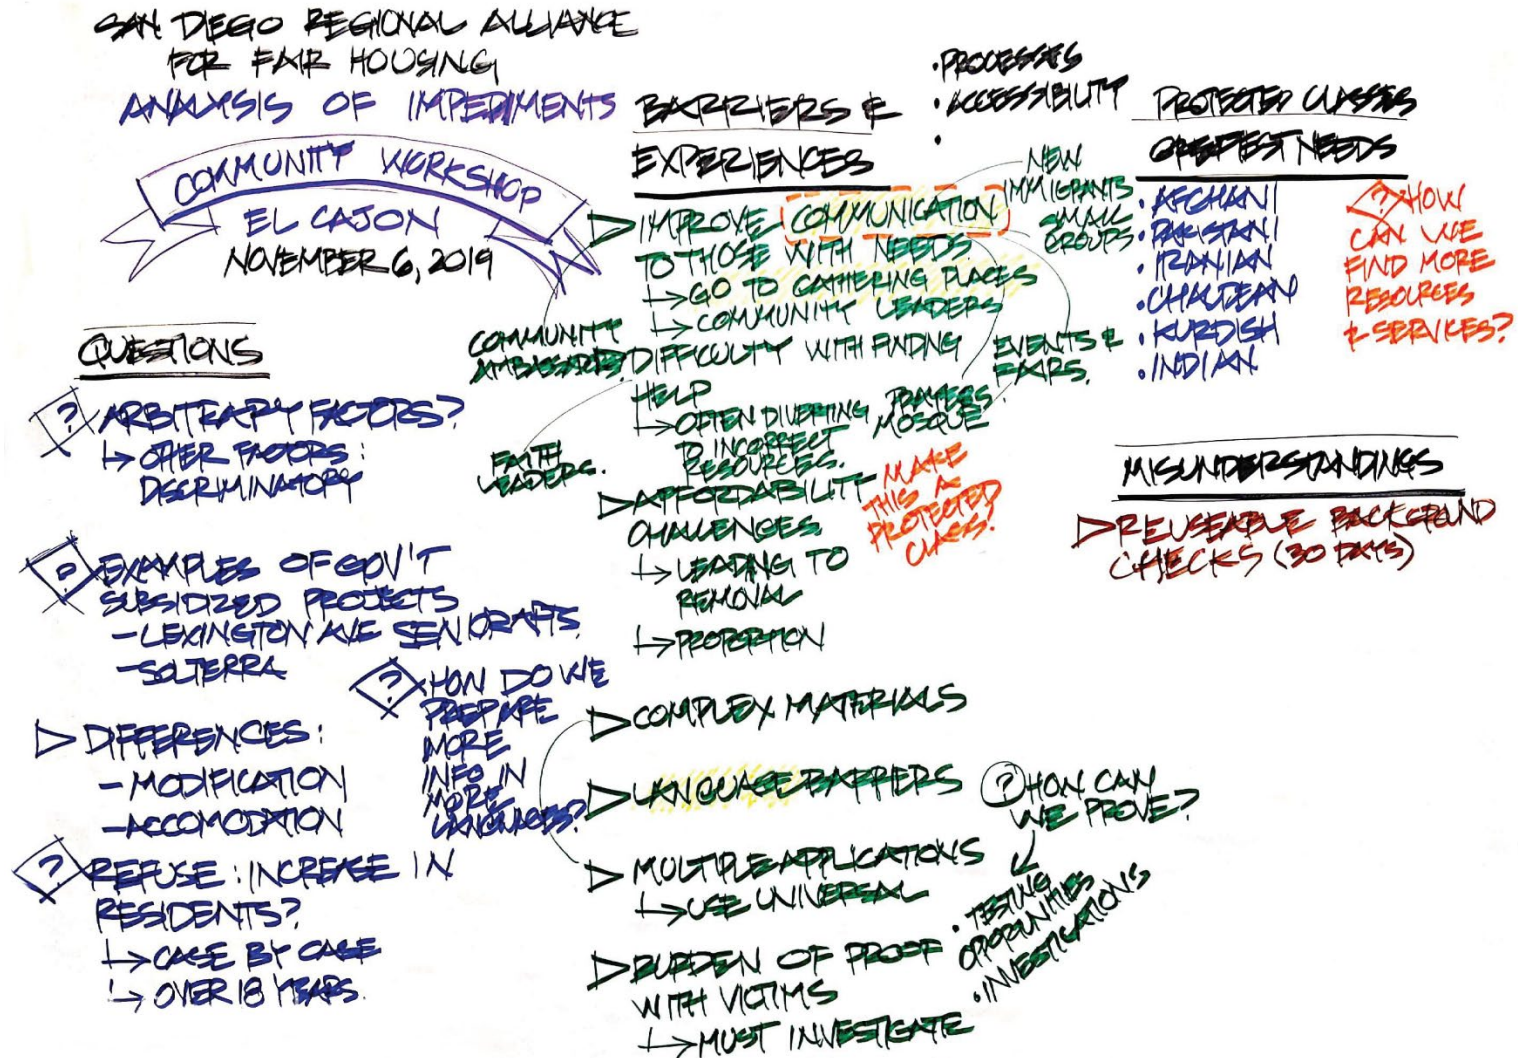 SAN DIEGO REGIONAL ALLIANCE
FOR FAIR HOUSING
ANALYSIS OF IMPEDIMENTS
COMMUNITY WORKSHOP
EL CAJON
NOVEMBER 6, 2019
QUESTIONS
? ARBITRARY FACTORS?
↳ OTHER FACTORS:
DISCRIMINATORY
? EXAMPLES OF GOV'T
SUBSIDIZED PROJECTS
- LEXINGTON AVE SENIOR APTS.
- SOLTERRA
▷ DIFFERENCES:
- MODIFICATION
- ACCOMODATION
? HOW DO WE
PREPARE
MORE
INFO IN
MORE
LANGUAGES?
? REFUSE: INCREASE IN
RESIDENTS?
↳ CASE BY CASE
↳ OVER 18 YEARS.
BARRIERS &
EXPERIENCES
• PROCESSES
• ACCESSIBILITY
•
▷ IMPROVE COMMUNICATION
TO THOSE WITH NEEDS
↳ GO TO GATHERING PLACES
↳ COMMUNITY LEADERS
NEW
IMMIGRANTS
SMALL
GROUPS
COMMUNITY
AMBASSADORS
FAITH
LEADERS.
EVENTS &
FAIRS.
PRAYERS
MOSQUE
▷ DIFFICULTY WITH FINDING
HELP
↳ OFTEN DIVERTING
TO INCORRECT
RESOURCES.
▷ AFFORDABILITY
CHALLENGES
↳ LEADING TO
REMOVAL
↳ PROPORTION
MAKE
THIS A
PROTECTED
CLASS!
▷ COMPLEX MATERIALS
▷ LANGUAGE BARRIERS
▷ MULTIPLE APPLICATIONS
↳ USE UNIVERSAL
▷ BURDEN OF PROOF
WITH VICTIMS
↳ MUST INVESTIGATE
? HOW CAN
WE PROVE?
• TESTING
OPPORTUNITIES
• INVESTIGATIONS
PROTECTED CLASSES
GREATEST NEEDS
• AFGHANI
• PAKISTANI
• IRANIAN
• CHALDEAN
• KURDISH
• INDIAN
? HOW
CAN WE
FIND MORE
RESOURCES
& SERVICES?
MISUNDERSTANDINGS
▷ REUSEABLE BACKGROUND
CHECKS (30 DAYS)